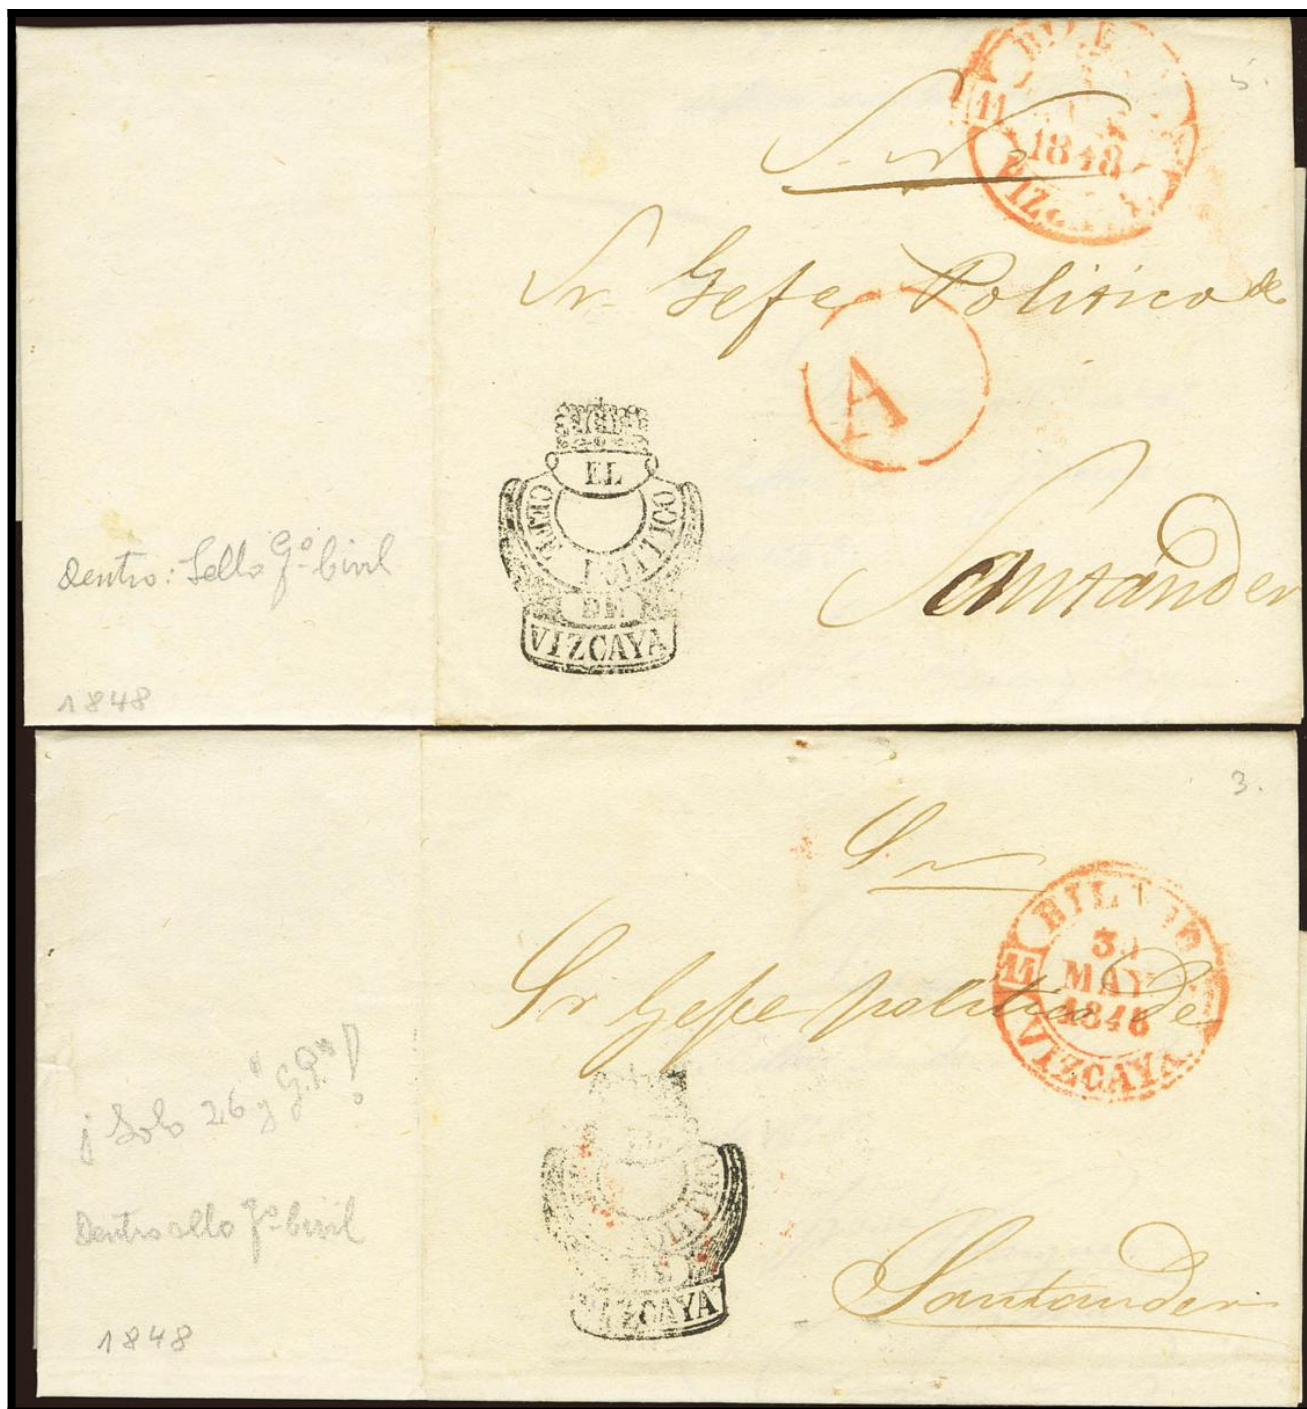 5.
BILB
11
1848
VIZCAYA
S. N.
Sr. Gefe Politico de
A
Santander
EL
GEFE POLITICO
DE
VIZCAYA
Dentro: Sello Gº Civil
1848
3.
S. N.
BILBAO
11
30
MAY
1848
VIZCAYA
Sr Gefe politico de
Santander
POLITICO
VIZCAYA
¡Solo 26 y "G.P."!
Dentro sello Gº Civil
1848